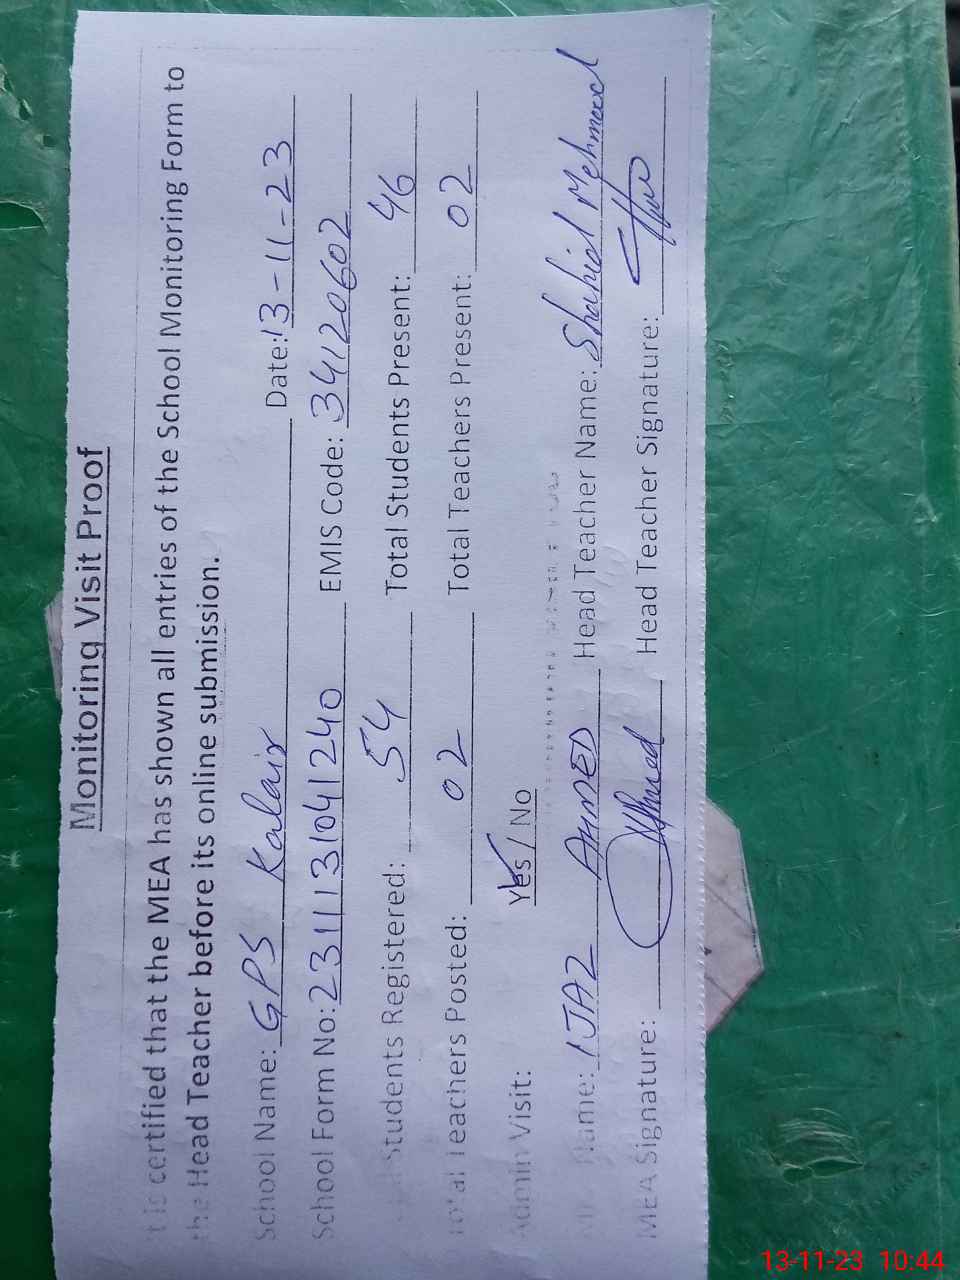 Monitoring Visit Proof
It is certified that the MEA has shown all entries of the School Monitoring Form to
the Head Teacher before its online submission.
School Name: GPS Kalair Date: 13-11-23
School Form No: 2311131041240 EMIS Code: 34120602
Students Registered: 54 Total Students Present: 46
Total Teachers Posted: 02 Total Teachers Present: 02
Admin Visit: Yes / No
Name: IJAZ AHMED Head Teacher Name: Shahid Mehmood
MEA Signature: Ahmed Head Teacher Signature:
13-11-23 10:44